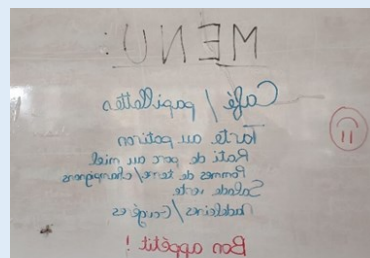 MENU :
Café / papillottes
Tarte au potiron
Roti de porc au miel
Pommes de terre/champignons
Salade verte
Madeleines/Gougères
Bon appétit !